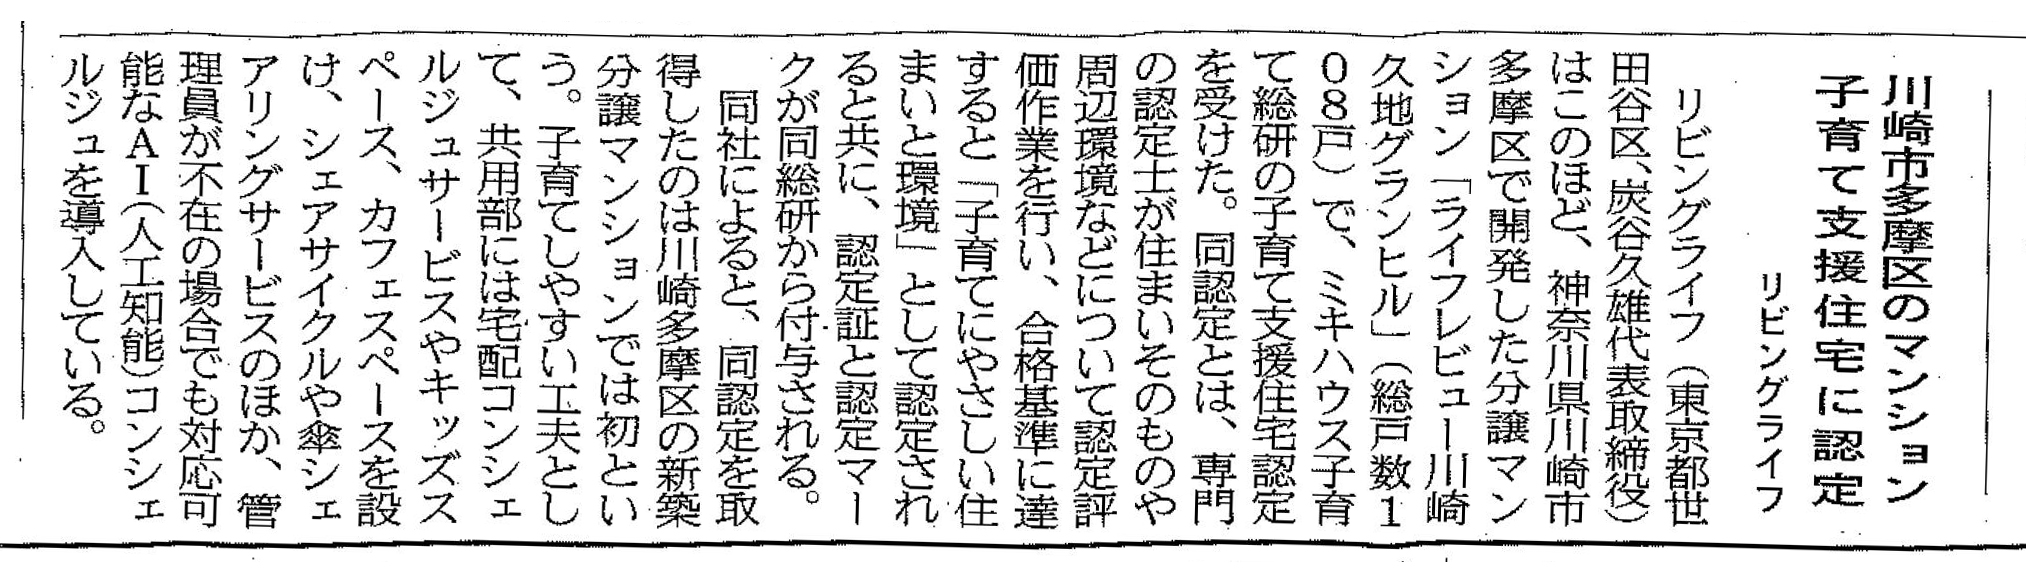 川崎市多摩区のマンション
子育て支援住宅に認定
リビングライフ
リビングライフ（東京都世
田谷区、炭谷久雄代表取締役）
はこのほど、神奈川県川崎市
多摩区で開発した分譲マン
ション「ライフレビュー川崎
久地グランヒル」（総戸数1
08戸）で、ミキハウス子育
て総研の子育て支援住宅認定
を受けた。同認定とは、専門
の認定士が住まいそのものや
周辺環境などについて認定評
価作業を行い、合格基準に達
すると「子育てにやさしい住
まいと環境」として認定され
ると共に、認定証と認定マー
クが同総研から付与される。
同社によると、同認定を取
得したのは川崎多摩区の新築
分譲マンションでは初とい
う。子育てしやすい工夫とし
て、共用部には宅配コンシェ
ルジュサービスやキッズス
ペース、カフェスペースを設
け、シェアサイクルや傘シェ
アリングサービスのほか、管
理員が不在の場合でも対応可
能なAI（人工知能）コンシェ
ルジュを導入している。